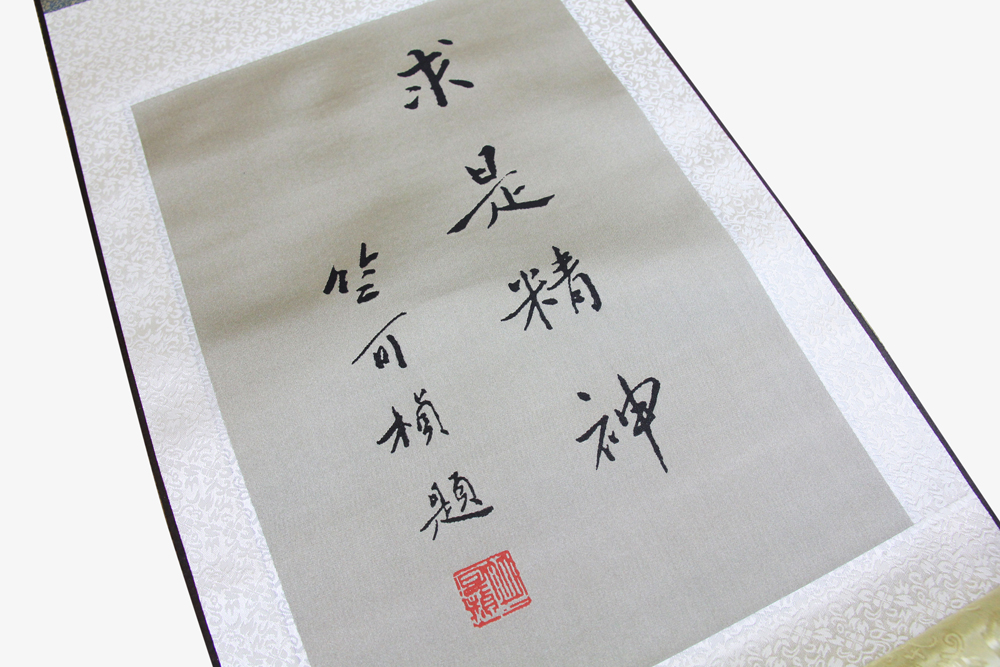 求是精神
竺可桢題